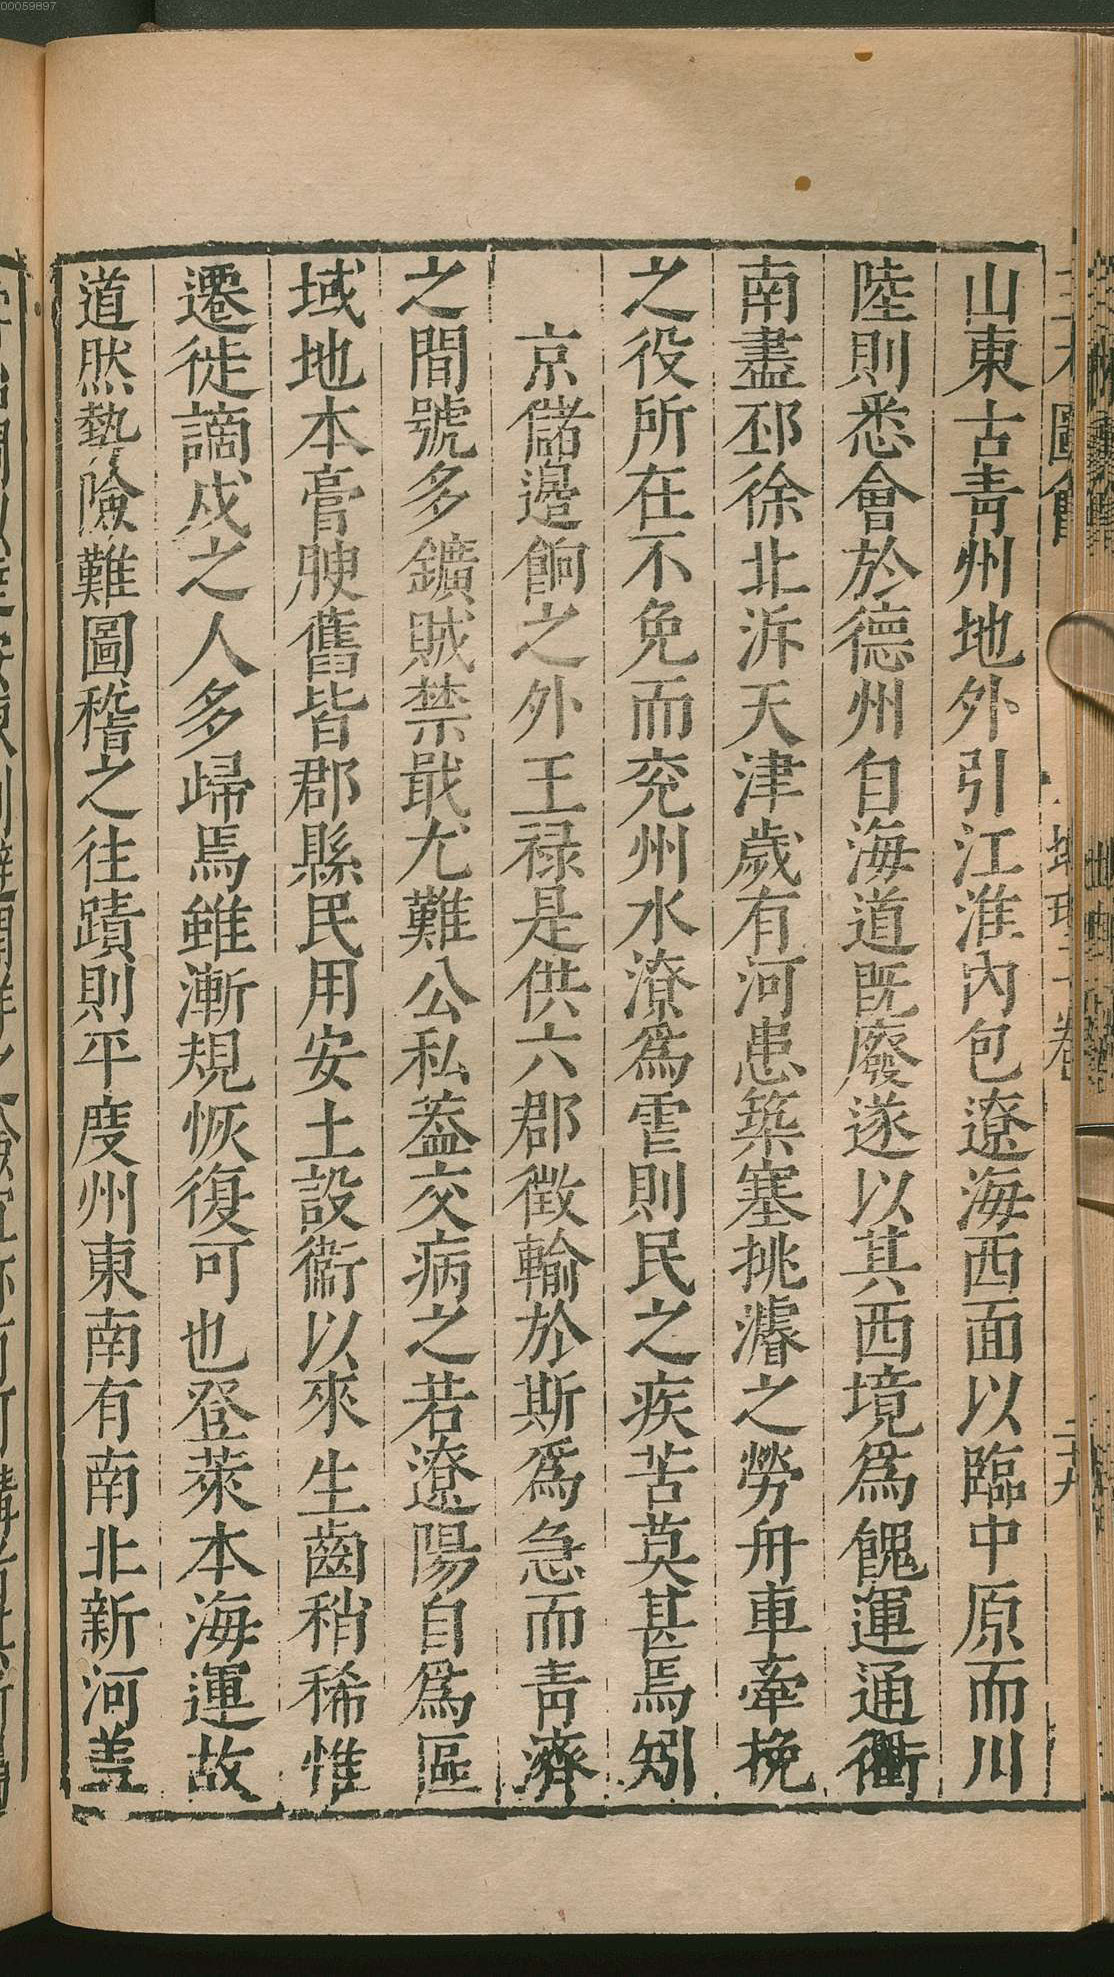 00059897
山東古青州地外引江淮內包遼海西面以臨中原而川
陸則悉會於德州自海道既廢遂以其西境爲餽運通衢
南盡邳徐北泝天津歲有河患築塞挑濬之勞舟車牽挽
之役所在不免而兖州水潦爲䨟則民之疾苦莫甚焉矧
京儲邉餉之外王禄是供六郡徵輸於斯爲急而青濟
之間號多鑛賊禁戢尤難公私葢交病之若遼陽自爲區
域地本膏腴舊皆郡縣民用安土設衞以來生齒稍稀惟
遷徙謫戍之人多歸焉雖漸規恢復可也登萊本海運故
道然勢險難圖稽之往蹟則平度州東南有南北新河葢